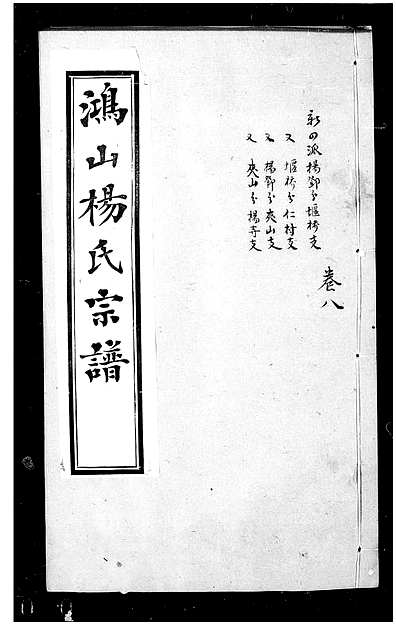 鴻山楊氏宗譜
新四派楊鄧分堰橋支
又 堰橋分仁村支
又 楊鄧分夾山支
又 夾山分楊寺支
卷八